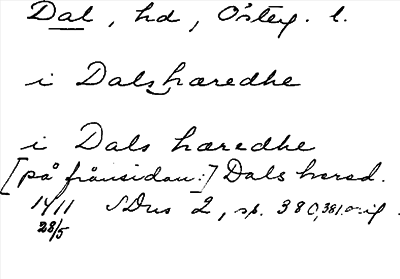 Dal, hd, Österg. l.
i Dalshæredhe
i Dals hæredhe
[på frånsidan:] Dals härad.
1411 SDns 2, sp. 380, 381. orig.
28/5